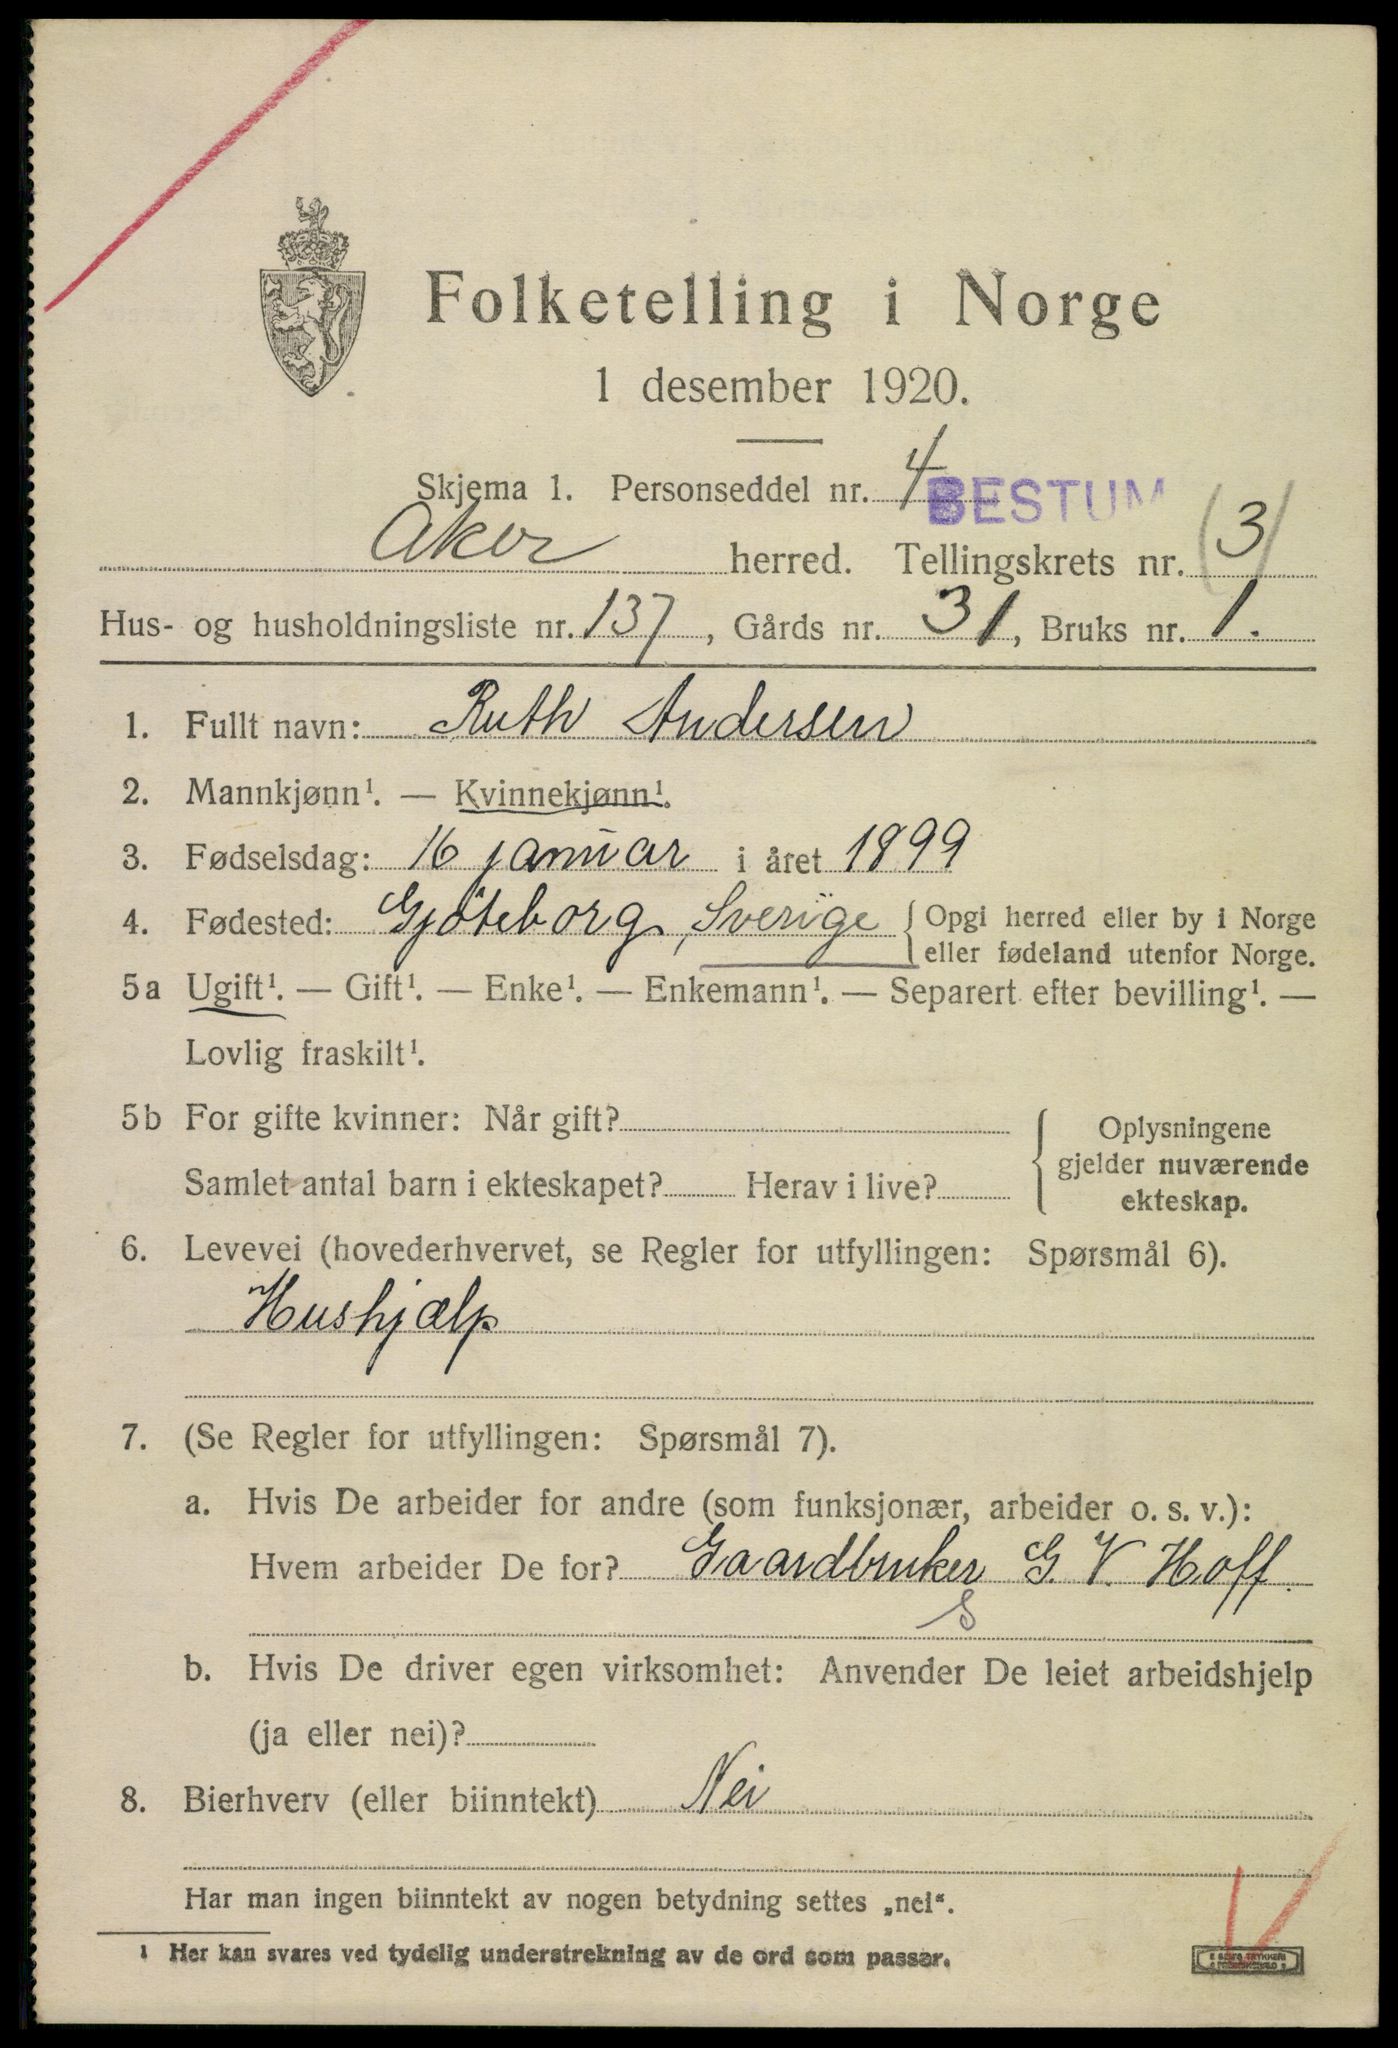 Folketelling i Norge
1 desember 1920.
Skjema 1. Personseddel nr. 4
BESTUM
Aker herred. Tellingskrets nr. (3)
Hus- og husholdningsliste nr. 137, Gårds nr. 31, Bruks nr. 1.
1. Fullt navn: Ruth Andersen
2. Mannkjønn¹. — Kvinnekjønn¹.
3. Fødselsdag: 16 januar i året 1899
4. Fødested: Gjöteborg, Sverige { Opgi herred eller by i Norge
eller fødeland utenfor Norge.
5a Ugift¹. — Gift¹. — Enke¹. — Enkemann¹. — Separert efter bevilling¹. —
Lovlig fraskilt¹.
5b For gifte kvinner: Når gift?
Samlet antal barn i ekteskapet? Herav i live?
{ Oplysningene
gjelder nuværende
ekteskap.
6. Levevei (hovederhvervet, se Regler for utfyllingen: Spørsmål 6).
Hushjælp
7. (Se Regler for utfyllingen: Spørsmål 7).
a. Hvis De arbeider for andre (som funksjonær, arbeider o. s. v.):
Hvem arbeider De for? Gaardbruker G. V. Hoff.
S
b. Hvis De driver egen virksomhet: Anvender De leiet arbeidshjelp
(ja eller nei)?
8. Bierhverv (eller biinntekt) Nei
Har man ingen biinntekt av nogen betydning settes „nei“.
¹ Her kan svares ved tydelig understrekning av de ord som passer.